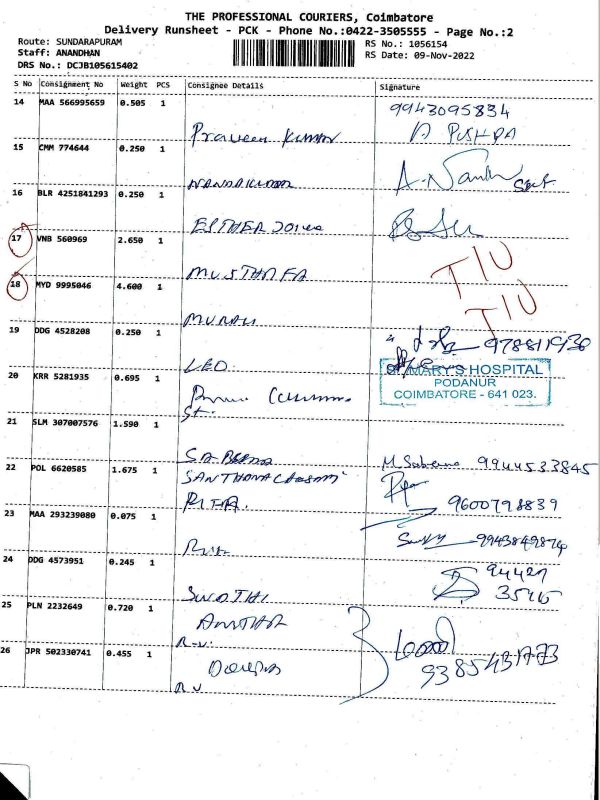 THE PROFESSIONAL COURIERS, Coimbatore
Delivery Runsheet - PCK - Phone No.:0422-3505555 - Page No.:2
Route: SUNDARAPURAM
Staff: ANANDHAN
DRS No.: DCJB105615402
RS No.: 1056154
RS Date: 09-Nov-2022
S No Consignment No Weight PCS Consignee Details Signature
14 MAA 566995659 0.505 1 9943095834
Praveen Kumar A PUSHPA
15 CMM 774644 0.250 1
NANDAKUMAR
16 BLR 4251841293 0.250 1
ESTHER
17 VNB 560969 2.650 1
MUSTHAFA
18 MYD 9995046 4.600 1
MURALI
19 DDG 4528208 0.250 1
LEO
20 KRR 5281935 0.695 1
St. MARY'S HOSPITAL
PODANUR
COIMBATORE - 641 023.
21 SLM 307007576 1.590 1
SABEENA 9944533845
22 POL 6620585 1.675 1
RITA. 9600798839
23 MAA 293239080 0.075 1
9943849874
24 DDG 4573951 0.245 1
SWATHI
25 PLN 2232649 0.720 1
R.V.
26 JPR 502330741 0.455 1
R.V 9385431773